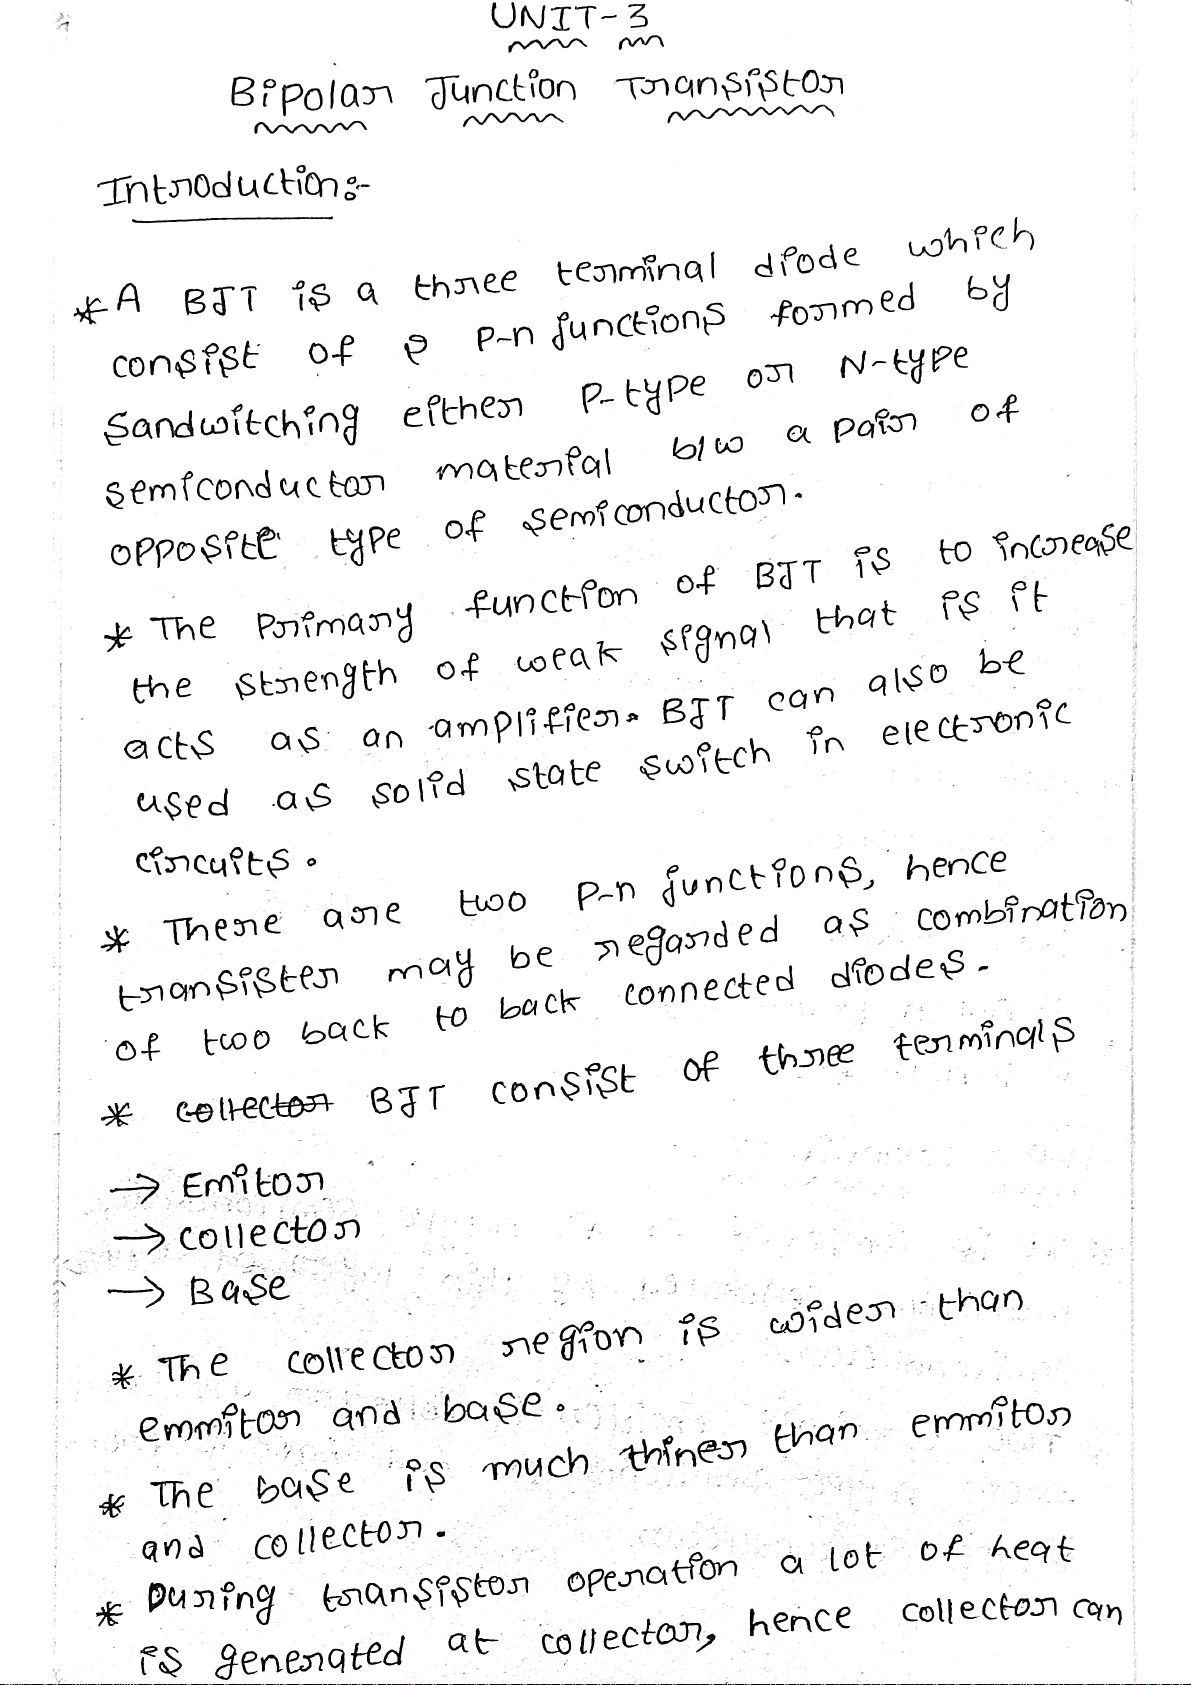 UNIT-3
Bipolar Junction Transistor
Introduction:-
* A BJT is a three terminal diode which
consist of 2 P-n junctions formed by
Sandwitching either P-type or N-type
semiconductor material b/w a pair of
opposite type of semiconductor.
* The Primary function of BJT is to increase
the strength of weak signal that is it
acts as an amplifier. BJT can also be
used as solid state switch in electronic
circuits.
* There are two P-n junctions, hence
transister may be regarded as combination
of two back to back connected diodes.
* collector BJT consist of three terminals
→ Emitor
→ collector
→ Base
* The collector region is wider than
emmitor and base.
* The base is much thiner than emmitor
and collector.
* During transistor operation a lot of heat
is generated at collector, hence collector can